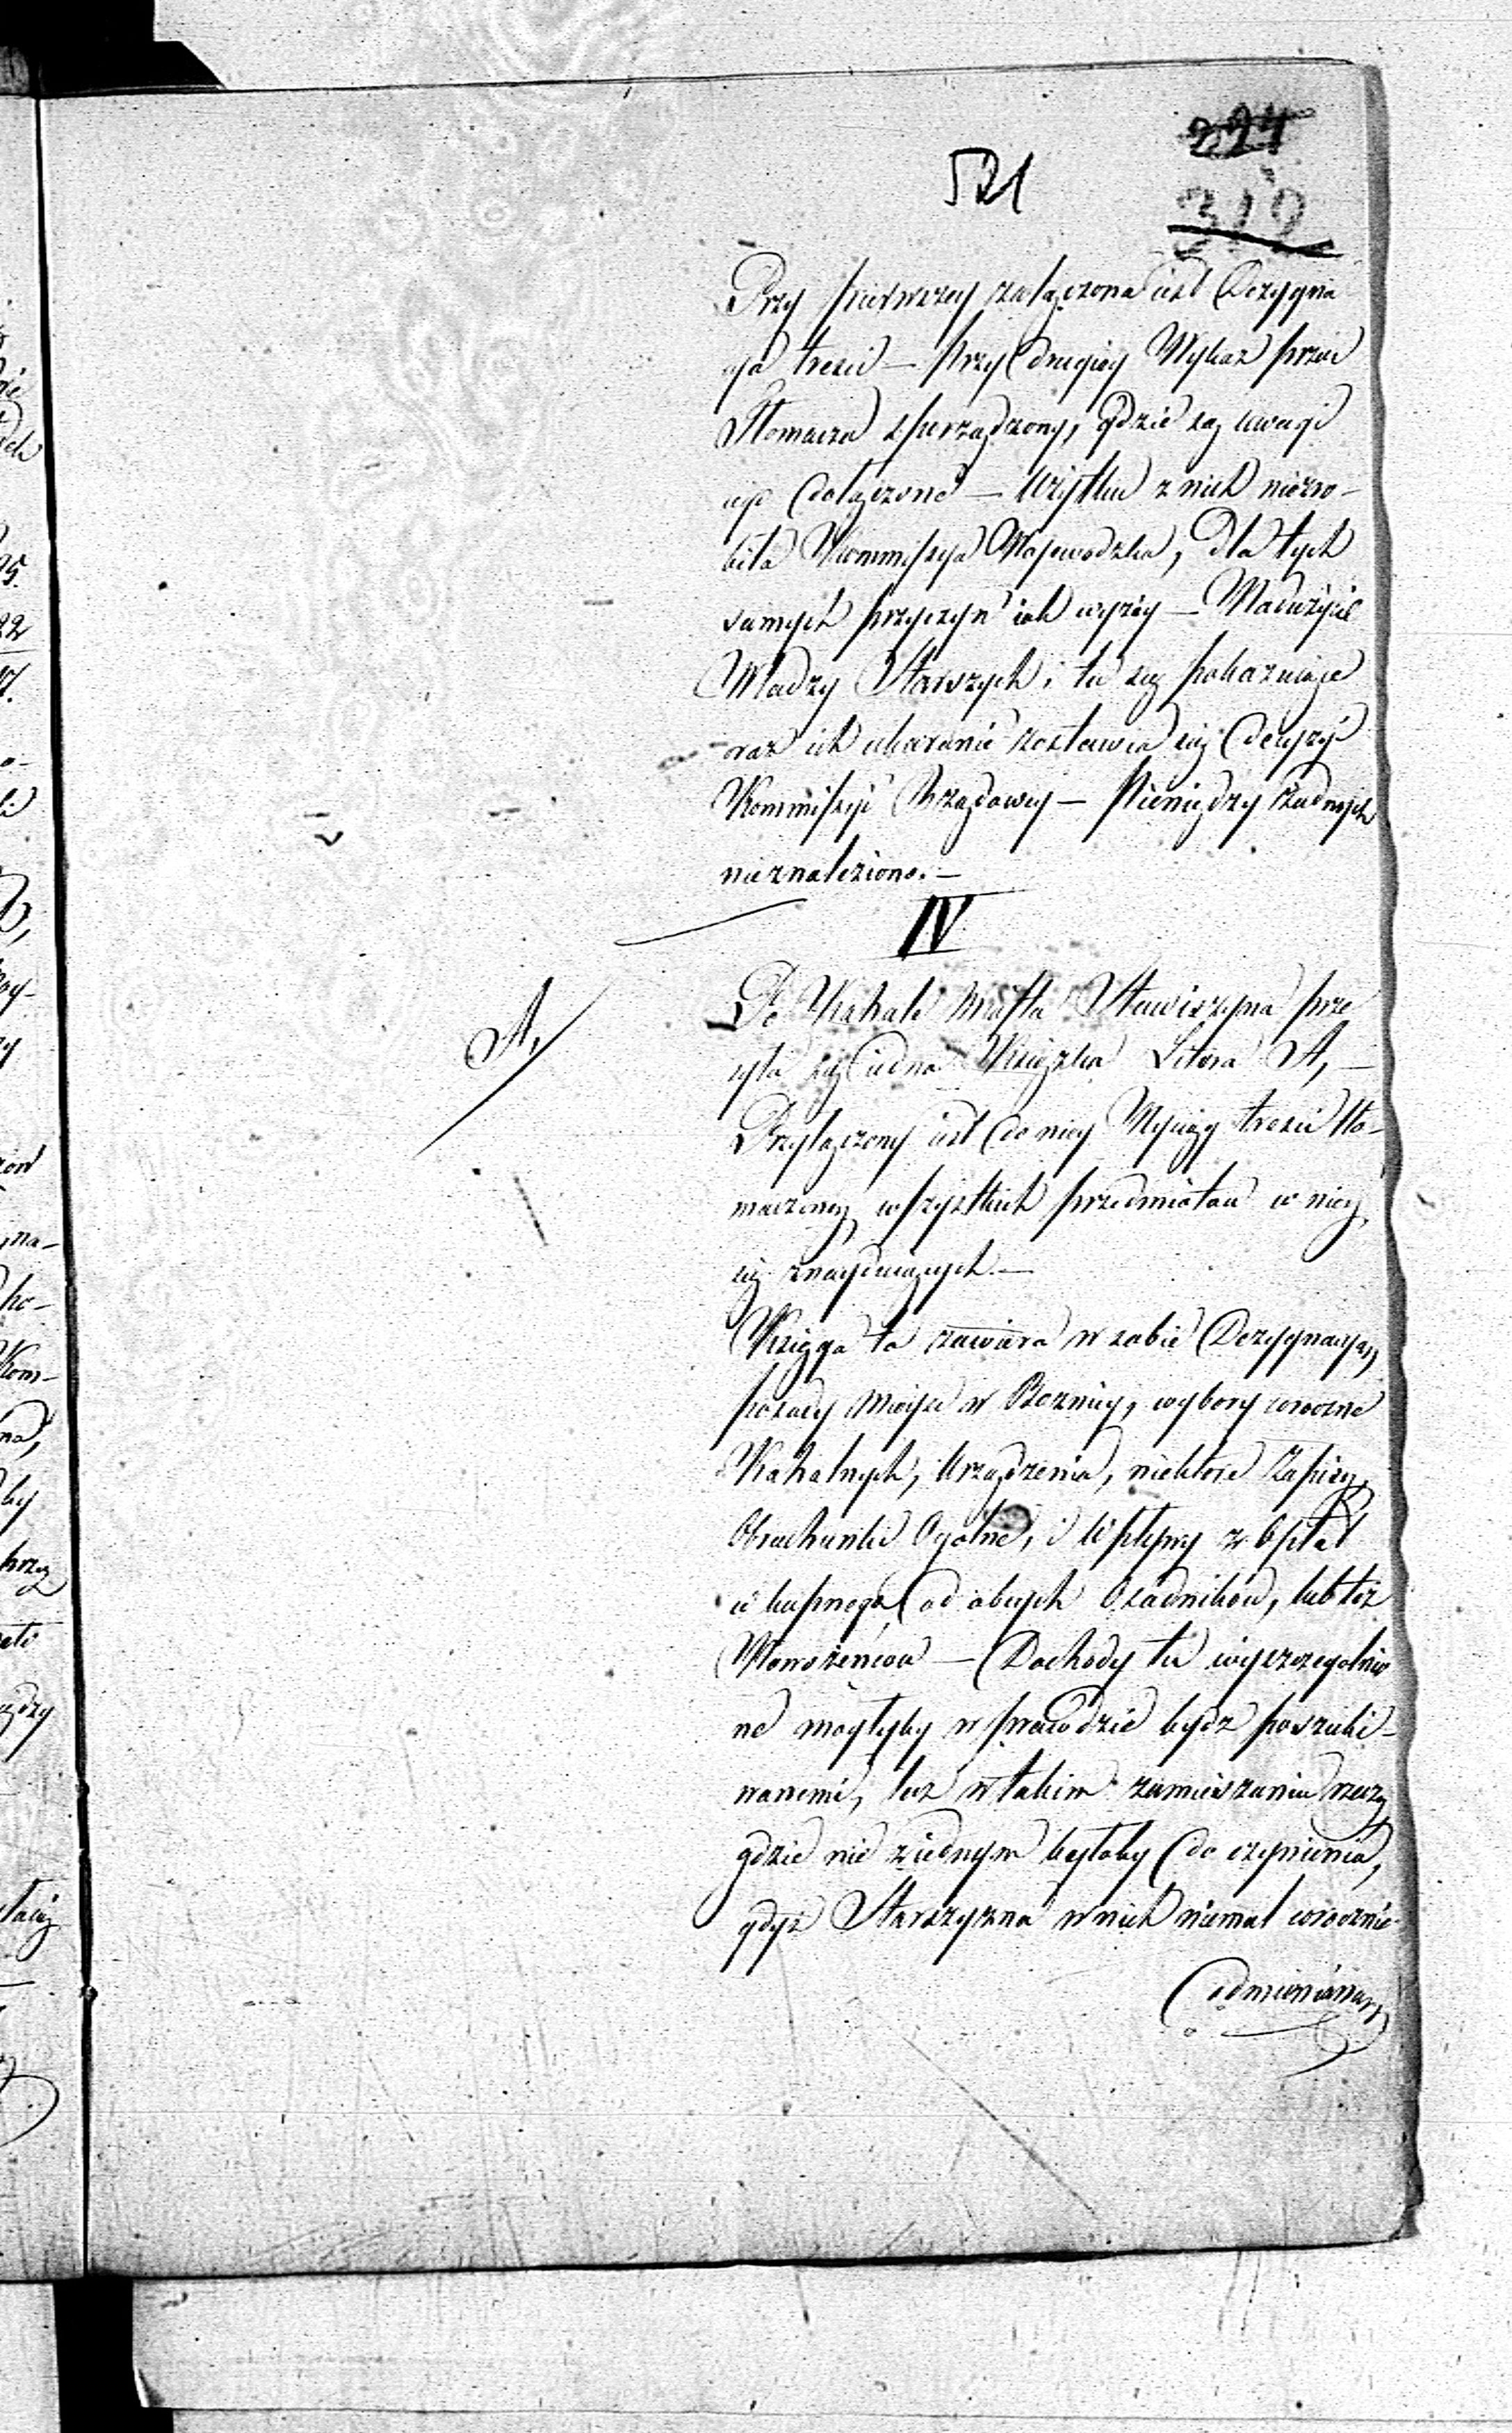 521
224
312
Przy pierwszey załączona iest Dezygna
cya tresci — Przy drugiey Wykaz przez
Tłomacza sporządzony, gdzie są uwagi
iego dołączone — Użytku z nich niezro-
biła Kommissya Woiewodzka, dla tych
samych przyczyn iak wyżey — Nadużycie
Władzy Starszych i tu się pokazuie
oraz ich ukaranie zostawia się decyzyi
Kommissyi Rządowey — Pieniędzy żadnych
nieznaleziono. —
IV
A,
Do Kahału Miasta Stawiszyna prze
syła się iedna Książka Litera A, —
Przyłączony iest do niey Wyciąg tresci tło-
maczoney wszystkich przedmiotow w niey
się znayduiących. —
Księga ta zawiera w sobie Dezygnacyą
posady mieysc w Boznicy, wybory coroczne
Kahalnych, Urządzenia, niektóre Zapisy,
Obrachunki Ogolne, i Wpływy z Opłat
wkupnego od obcych Osadników, lub też
Nowożeńcow — Dochody tu wyszczegolnio
ne mogłyby wprawdzie bydz poszuki-
wanemi, lecz w takim zamieszaniu rzeczy
gdzie nie ziednym byłoby do czynienia,
gdyż Starszyzna w nich niemal corocznie
odmienianą